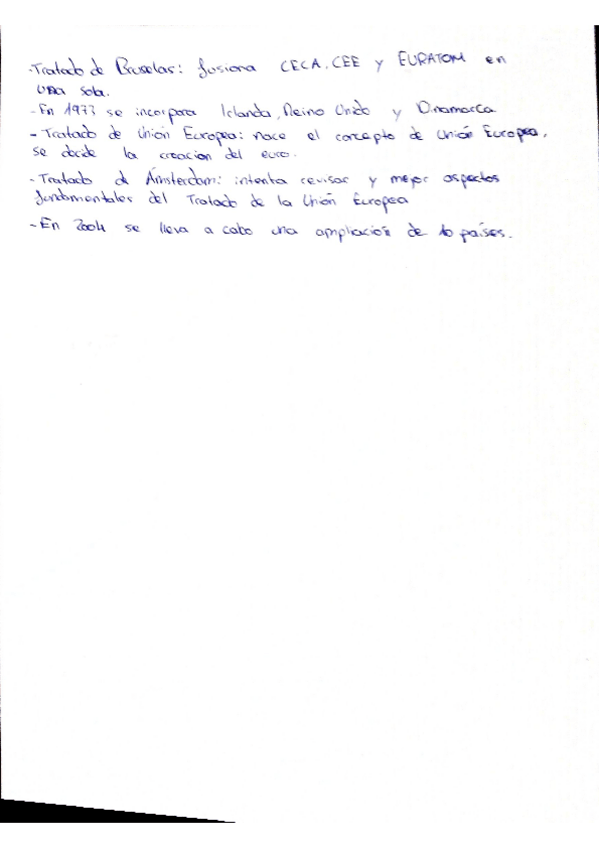 -Tratado de Bruselas: fusiona CECA, CEE y EURATOM en
una sola.
-En 1973 se incorpora Irlanda, Reino Unido y Dinamarca
- Tratado de Unión Europea: nace el concepto de Unión Europea,
se decide la creación del euro.
-Tratado de Ámsterdam: intenta revisar y mejor aspectos
fundamentales del Tratado de la Unión Europea
-En 2004 se lleva a cabo una ampliación de 10 países.